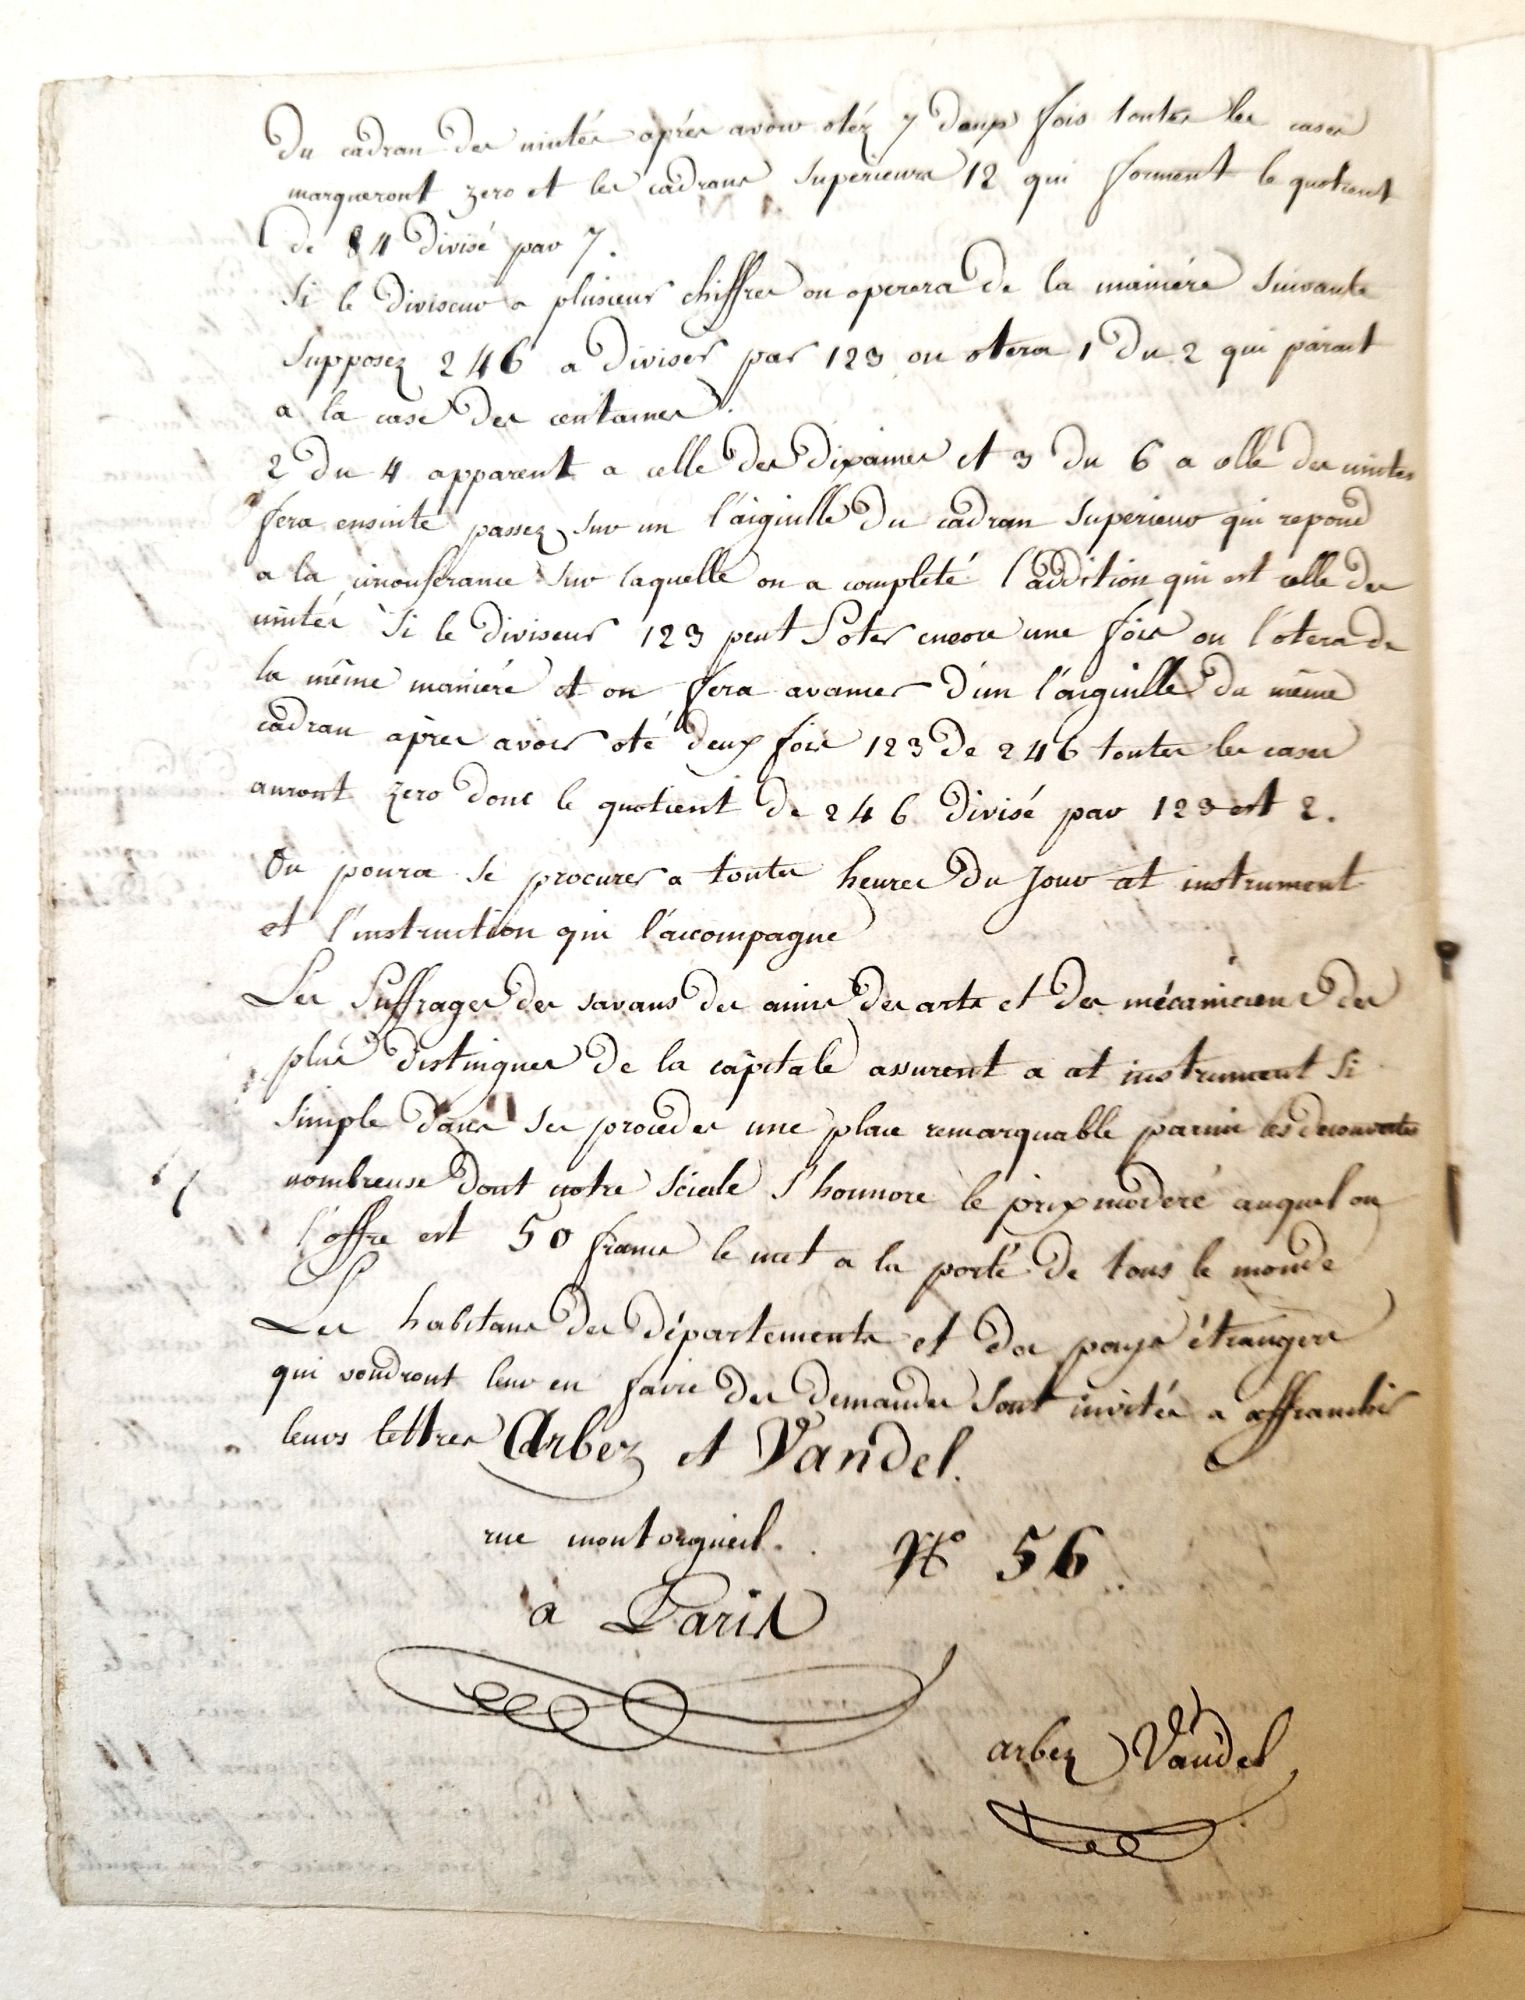 du cadran des unités après avoir otéz 7 deux fois toutes les cases
marqueront zero et les cadrans superieurs 12 qui forment le quotient
de 84 divisé par 7.
Si le diviseur a plusieurs chiffres on operera de la maniére suivante
Supposez 246 a diviser par 123 on otera 1 du 2 qui parait
a la case des centaines.
2 du 4 apparent a celle des dixaines et 3 du 6 a celle des unités
fera ensuite passez sur un l'aiguille du cadran superieur qui repond
a la circonferance sur laquelle on a completé l'addition qui est celle des
unités Si le diviseur 123 peut S'oter encore une fois on l'otera de
la même maniére et on fera avancer d'un l'aiguille du même
cadran après avoir oté deux fois 123 de 246 toutes les cases
auront zero donc le quotient de 246 divisé par 123 est 2.
On poura se procurer a toutes heures du Jour cet instrument
et l'instruction qui l'accompagne
Les Suffrages des savans des amis des arts et des mécaniciens des
plus distingues de la capitale assurent a cet instrument si
simple dans ses procedes une place remarquable parmi les decouvertes
nombreuse dont notre Siecle S'honnore le prix moderé auquel on
l'offre est 50 francs le met a la porté de tous le monde
Les habitans des départements et des pays étrangers
qui voudront leur en faire des demandes Sont invités a affranchir
leurs lettres Arbez et Vandel.
rue montorgueil. N° 56
à Paris
arbez Vandel